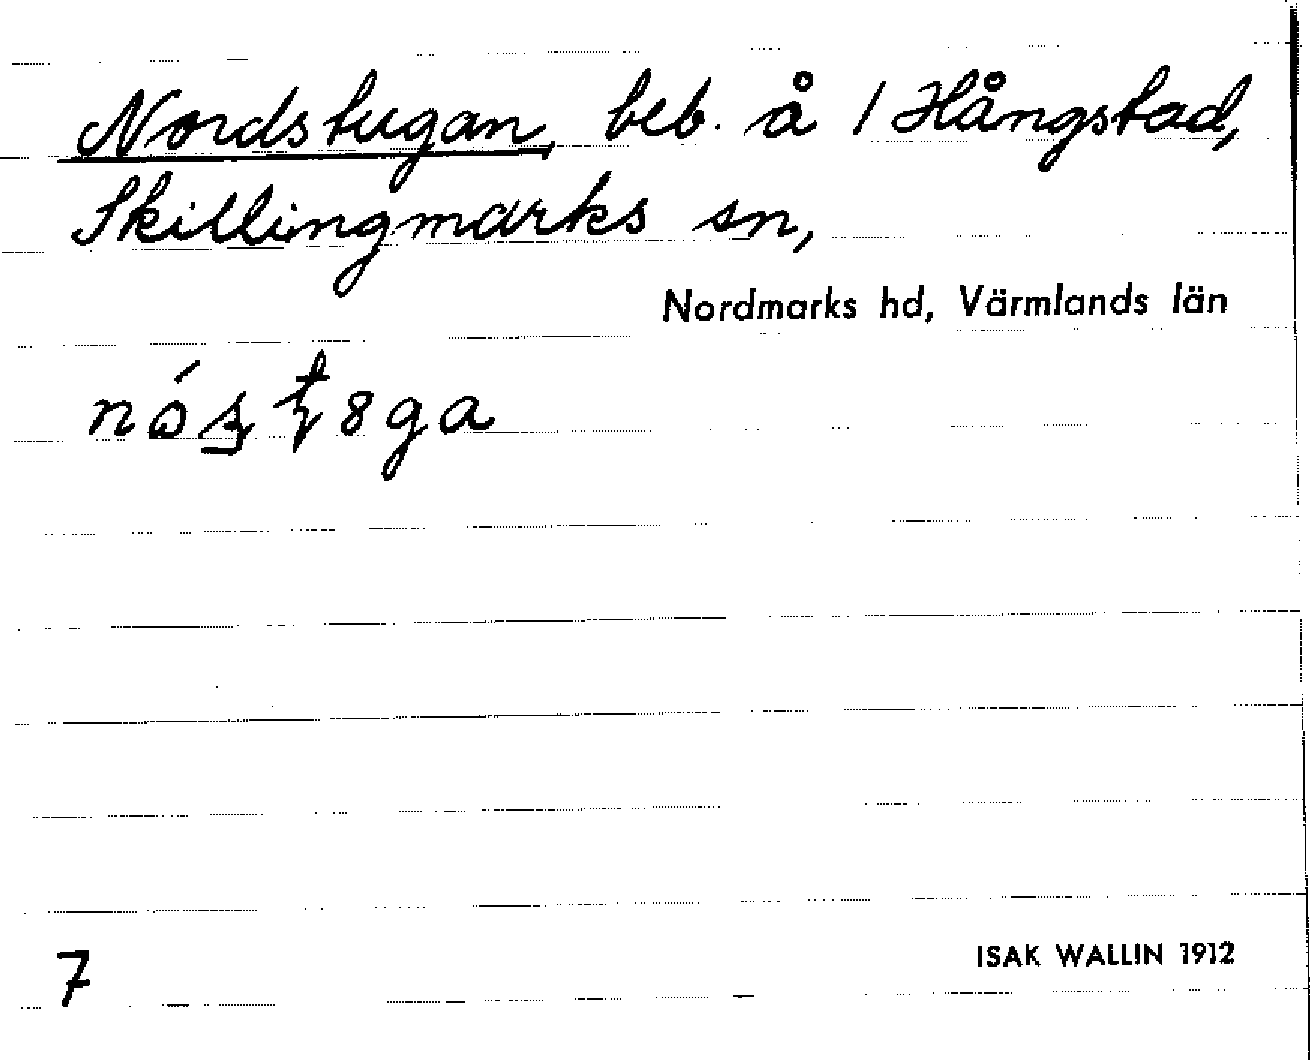 Nordstugan, beb. å 1 Hångstad,
Skillingmarks sn,
Nordmarks hd, Värmlands län
7
ISAK WALLIN 1912